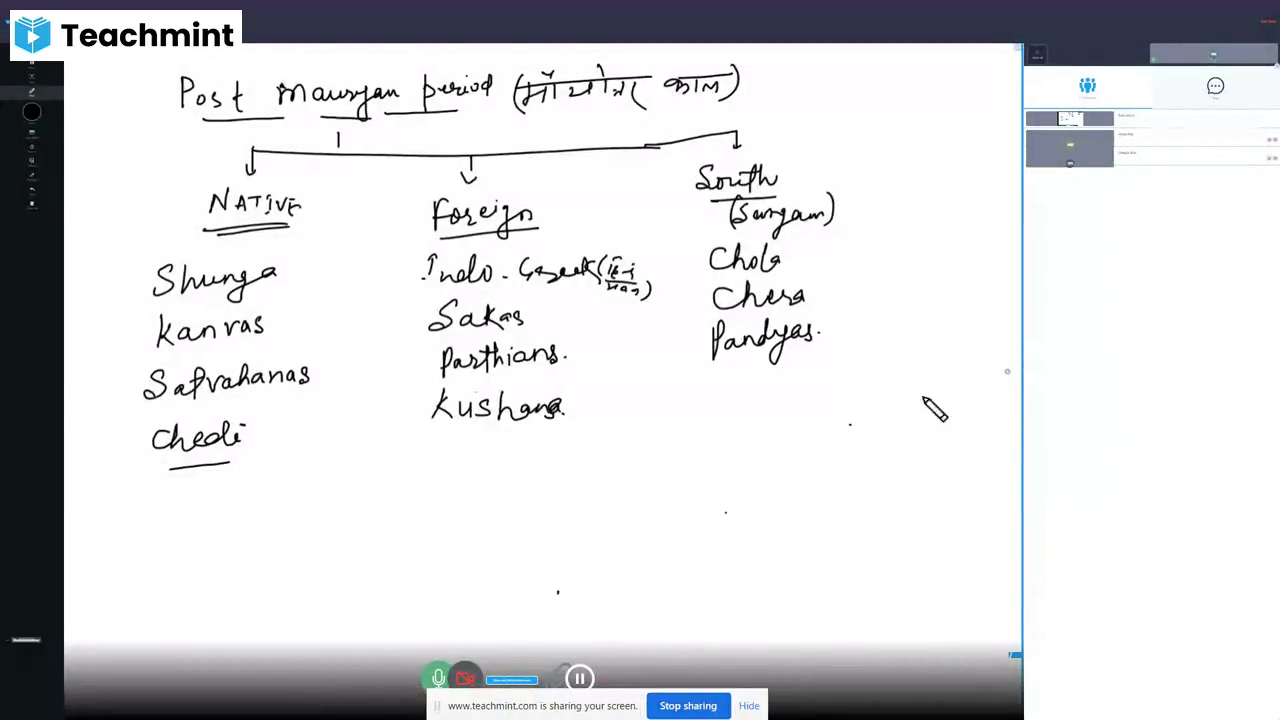 Teachmint
Post Mauryan period (मौर्योत्तर काल)
NATIVE
Shunga
Kanvas
Satvahanas
Chedi
Foreign
Indo - Greek
Sakas
Parthians.
Kushana
South
(Sangam)
Chola
Chera
Pandyas.
www.teachmint.com is sharing your screen.
Stop sharing
Hide